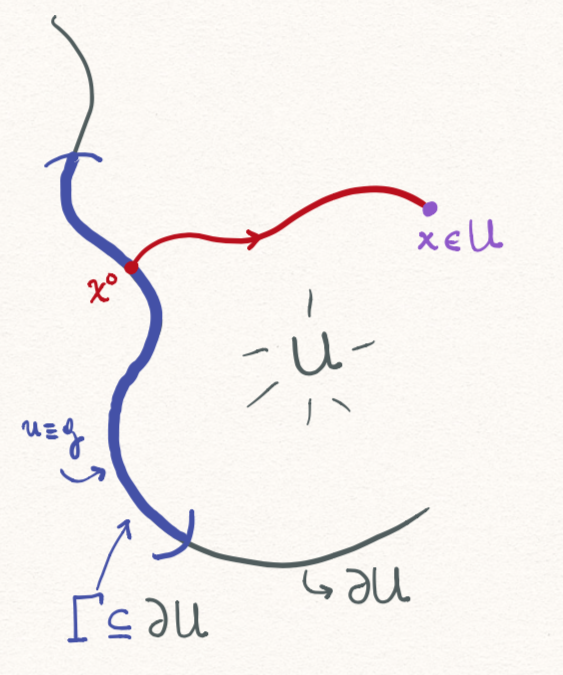 x ∈ U
x⁰
U
u ≡ g
∂U
Γ ⊆ ∂U